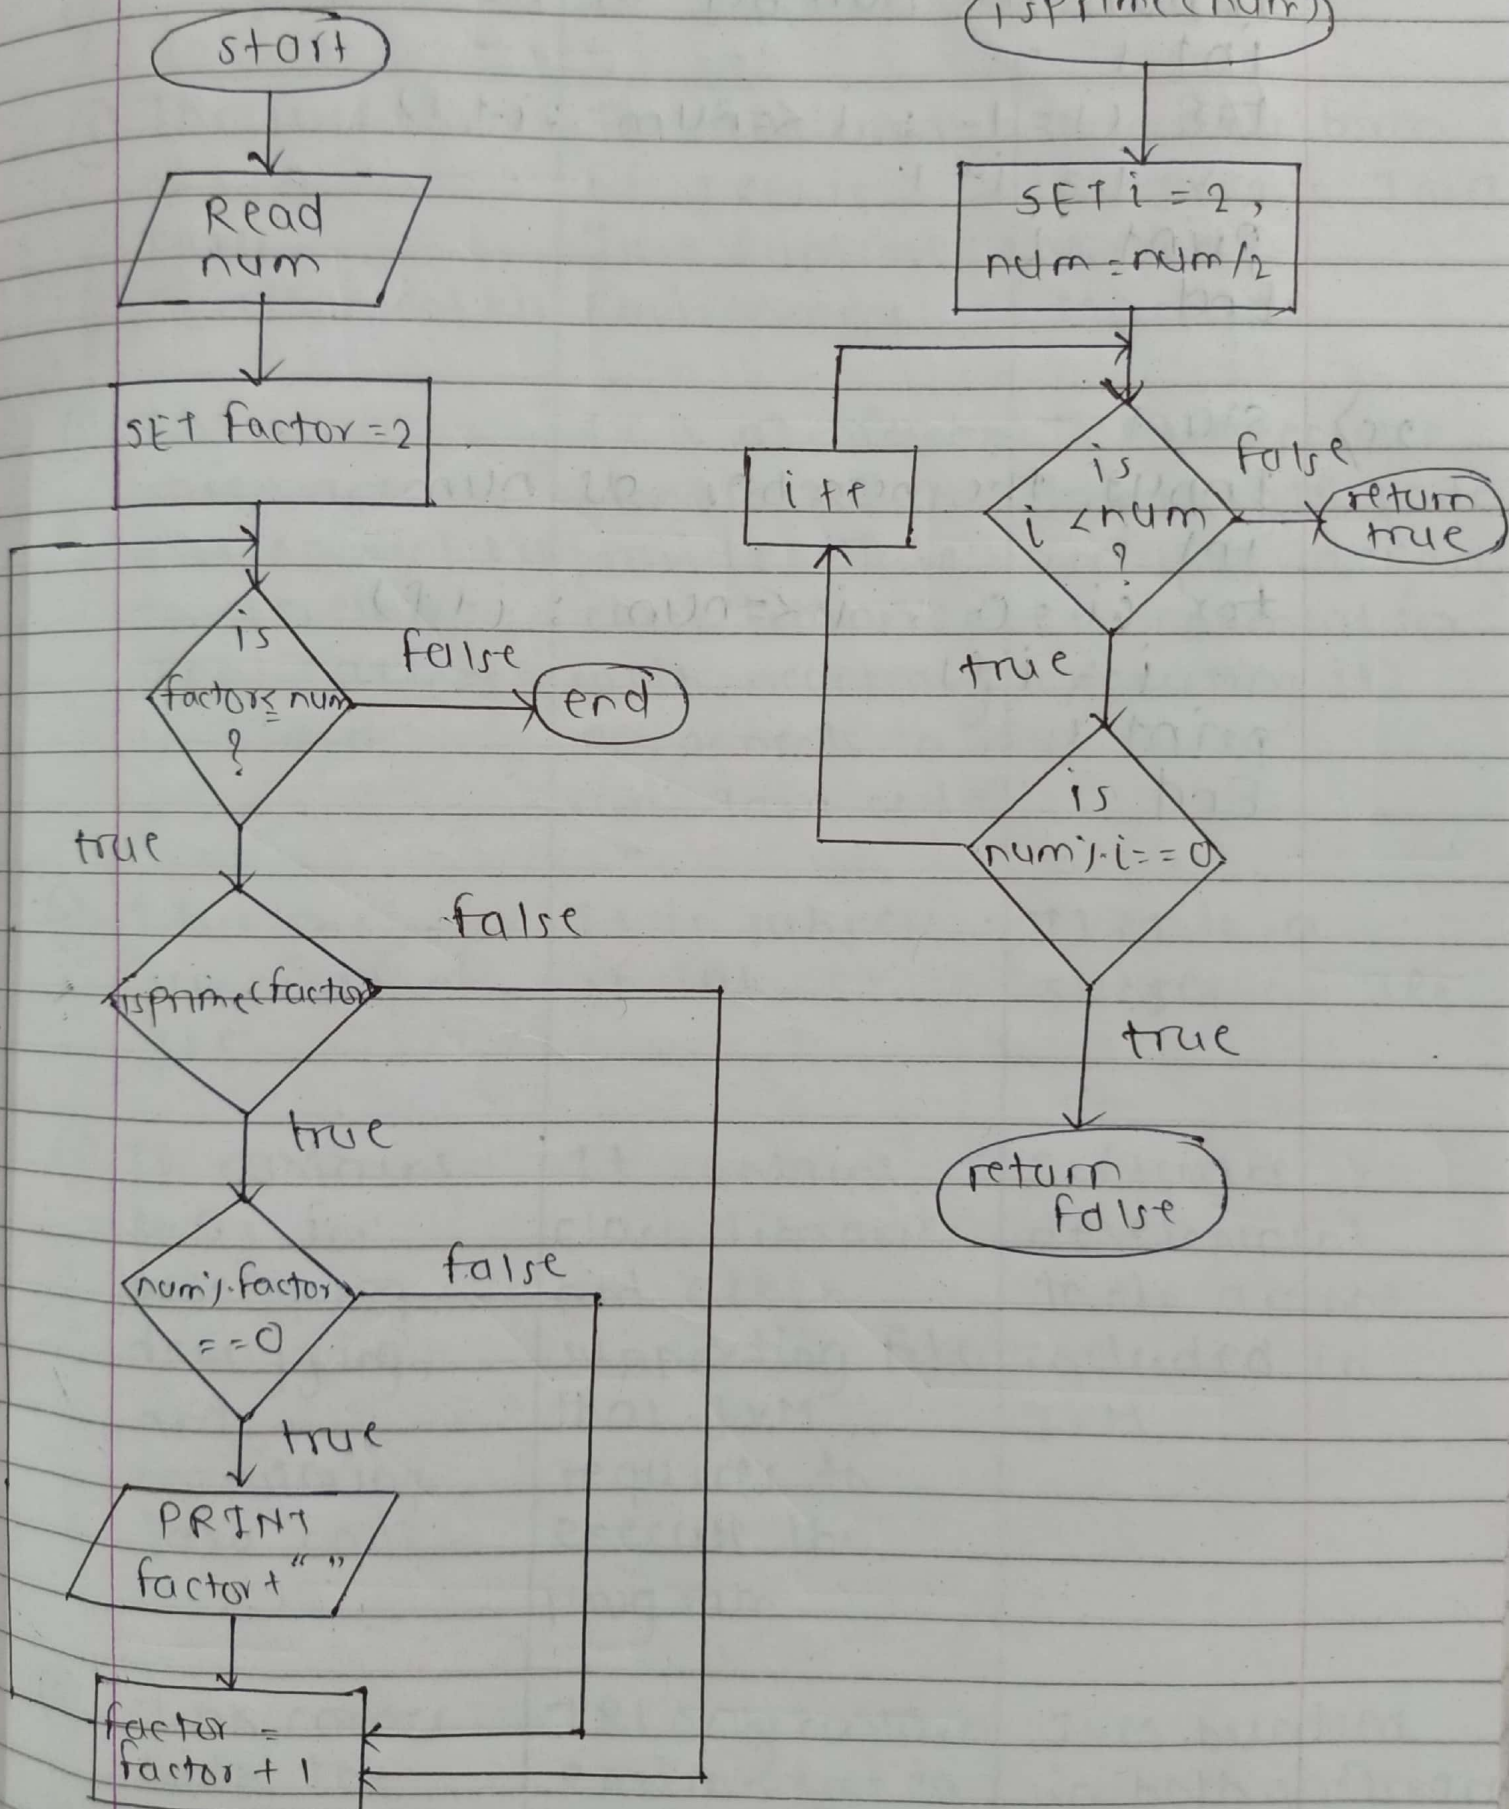 start
Read
num
SET factor=2
is
factor≤num
?
false
end
true
isprime(factor)
false
true
num%factor
==0
false
true
PRINT
factor+" "
factor =
factor + 1
isprime(num)
SET i = 2,
num=num/2
i++
is
i <num
?
false
return
true
true
is
num%i==0
true
return
false